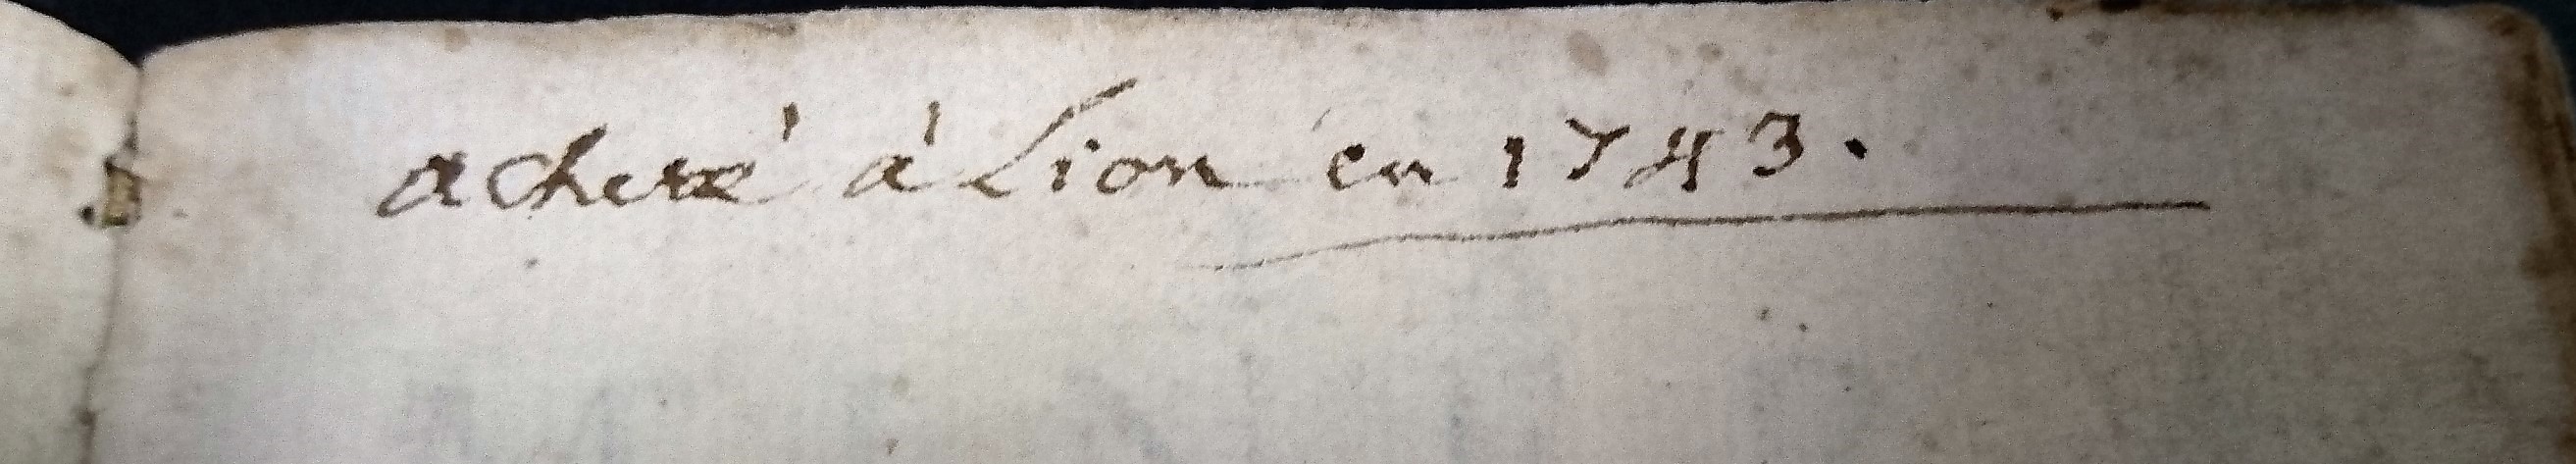 acheté à Lion en 1743.